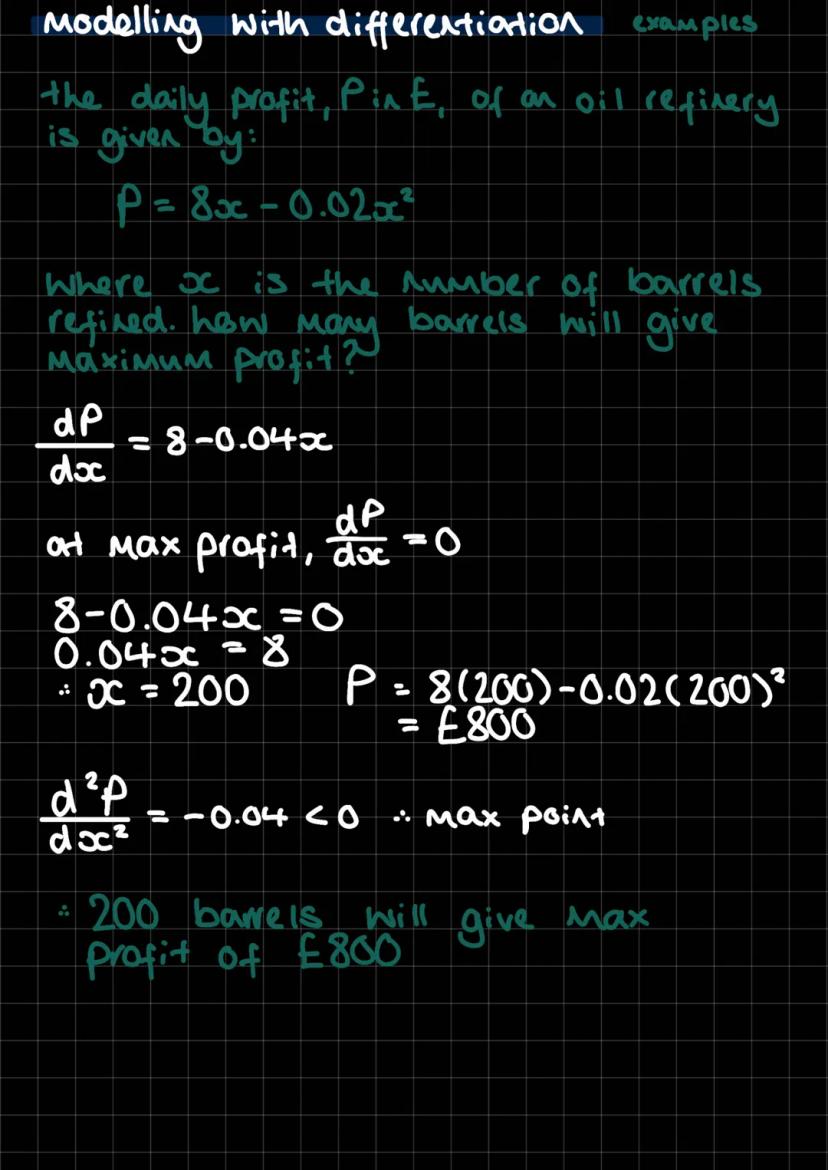 Modelling with differentiation examples
the daily profit, P in £, of an oil refinery
is given by:
P = 8x - 0.02x²
where x is the number of barrels
refined. how many barrels will give
maximum profit?
dP/dx = 8 - 0.04x
at max profit, dP/dx = 0
8 - 0.04x = 0
0.04x = 8
∴ x = 200
P = 8(200) - 0.02(200)²
= £800
d²P/dx² = -0.04 < 0 ∴ max point
∴ 200 barrels will give max
profit of £800